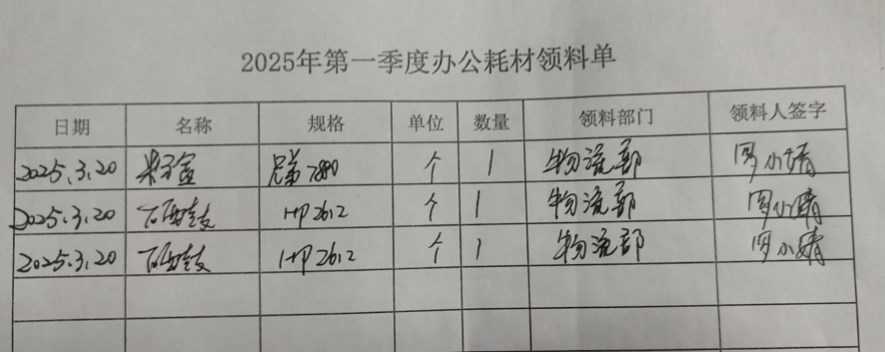 2025年第一季度办公耗材领料单
日期 名称 规格 单位 数量 领料部门 领料人签字
2025.3.20 粉盒 兄弟7880 个 1 物流部 周小婧
2025.3.20 硒鼓 HP2612 个 1 物流部 周小婧
2025.3.20 硒鼓 HP2612 个 1 物流部 周小婧